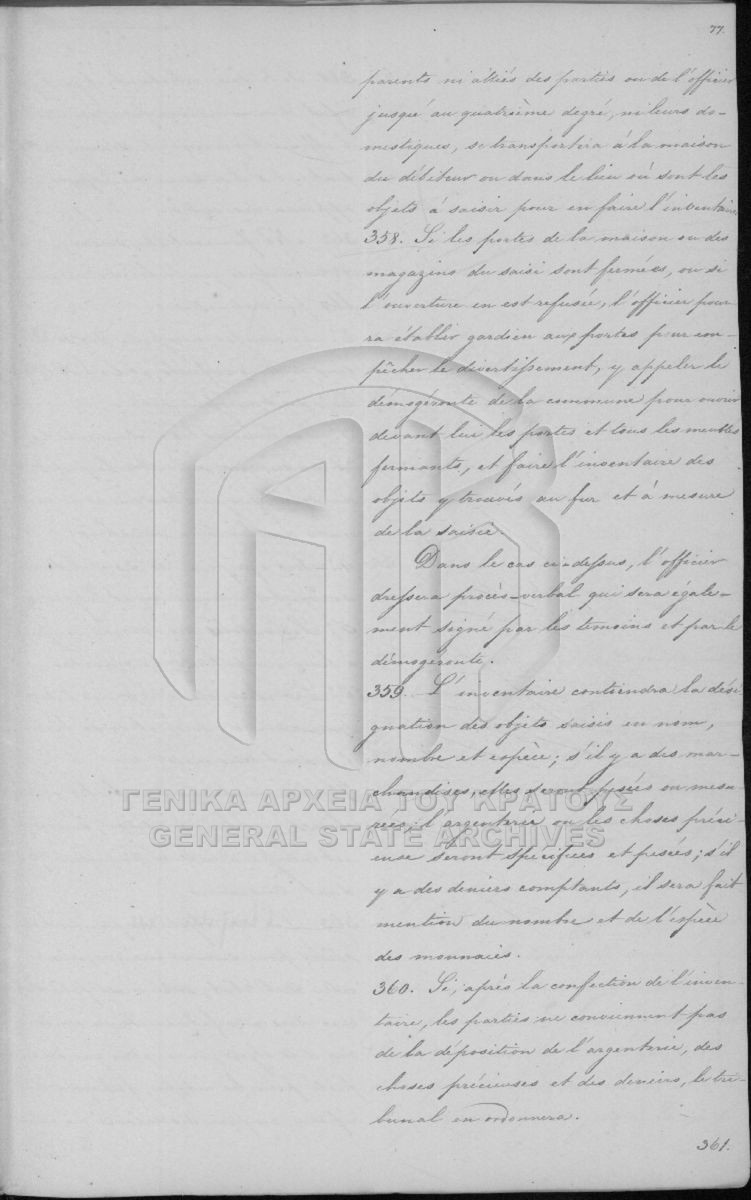 77.
parents ni alliés des parties ou de l'officier
jusqu'au quatrième degré, ni leurs do-
mestiques, se transportera à la maison
du débiteur ou dans le lieu où sont les
objets à saisir pour en faire l'inventaire.
358. Si les portes de la maison ou des
magazins du saisi sont fermées, ou si
l'ouverture en est refusée, l'officier pour-
ra établir gardien aux portes pour em-
pêcher le divertissement, y appeler le
démogéronte de la commune pour ouvrir
devant lui les portes et tous les meubles
fermants, et faire l'inventaire des
objets y trouvés au fur et à mesure
de la saisie.
Dans le cas ci-dessus, l'officier
dressera procès-verbal qui sera égale-
ment signé par les temoins et par le
démogeronte.
359. L'inventaire contiendra la dési-
gnation des objets saisis en nom,
nombre et espèce; s'il y a des mar-
chandises, elles seront pesées ou mesu-
ΓΕΝΙΚΑ ΑΡΧΕΙΑ ΤΟΥ ΚΡΑΤΟΥΣ
rées; l'argenterie ou les choses préci-
GENERAL STATE ARCHIVES
euse seront specifiées et pesées; s'il
y a des deniers comptants, il sera fait
mention du nombre et de l'espèce
des monnaies.
360. Si, après la confection de l'inven-
taire, les parties ne conviennent pas
de la déposition de l'argenterie, des
choses précieuses et des deniers, le tri-
bunal en ordonnera.
361.